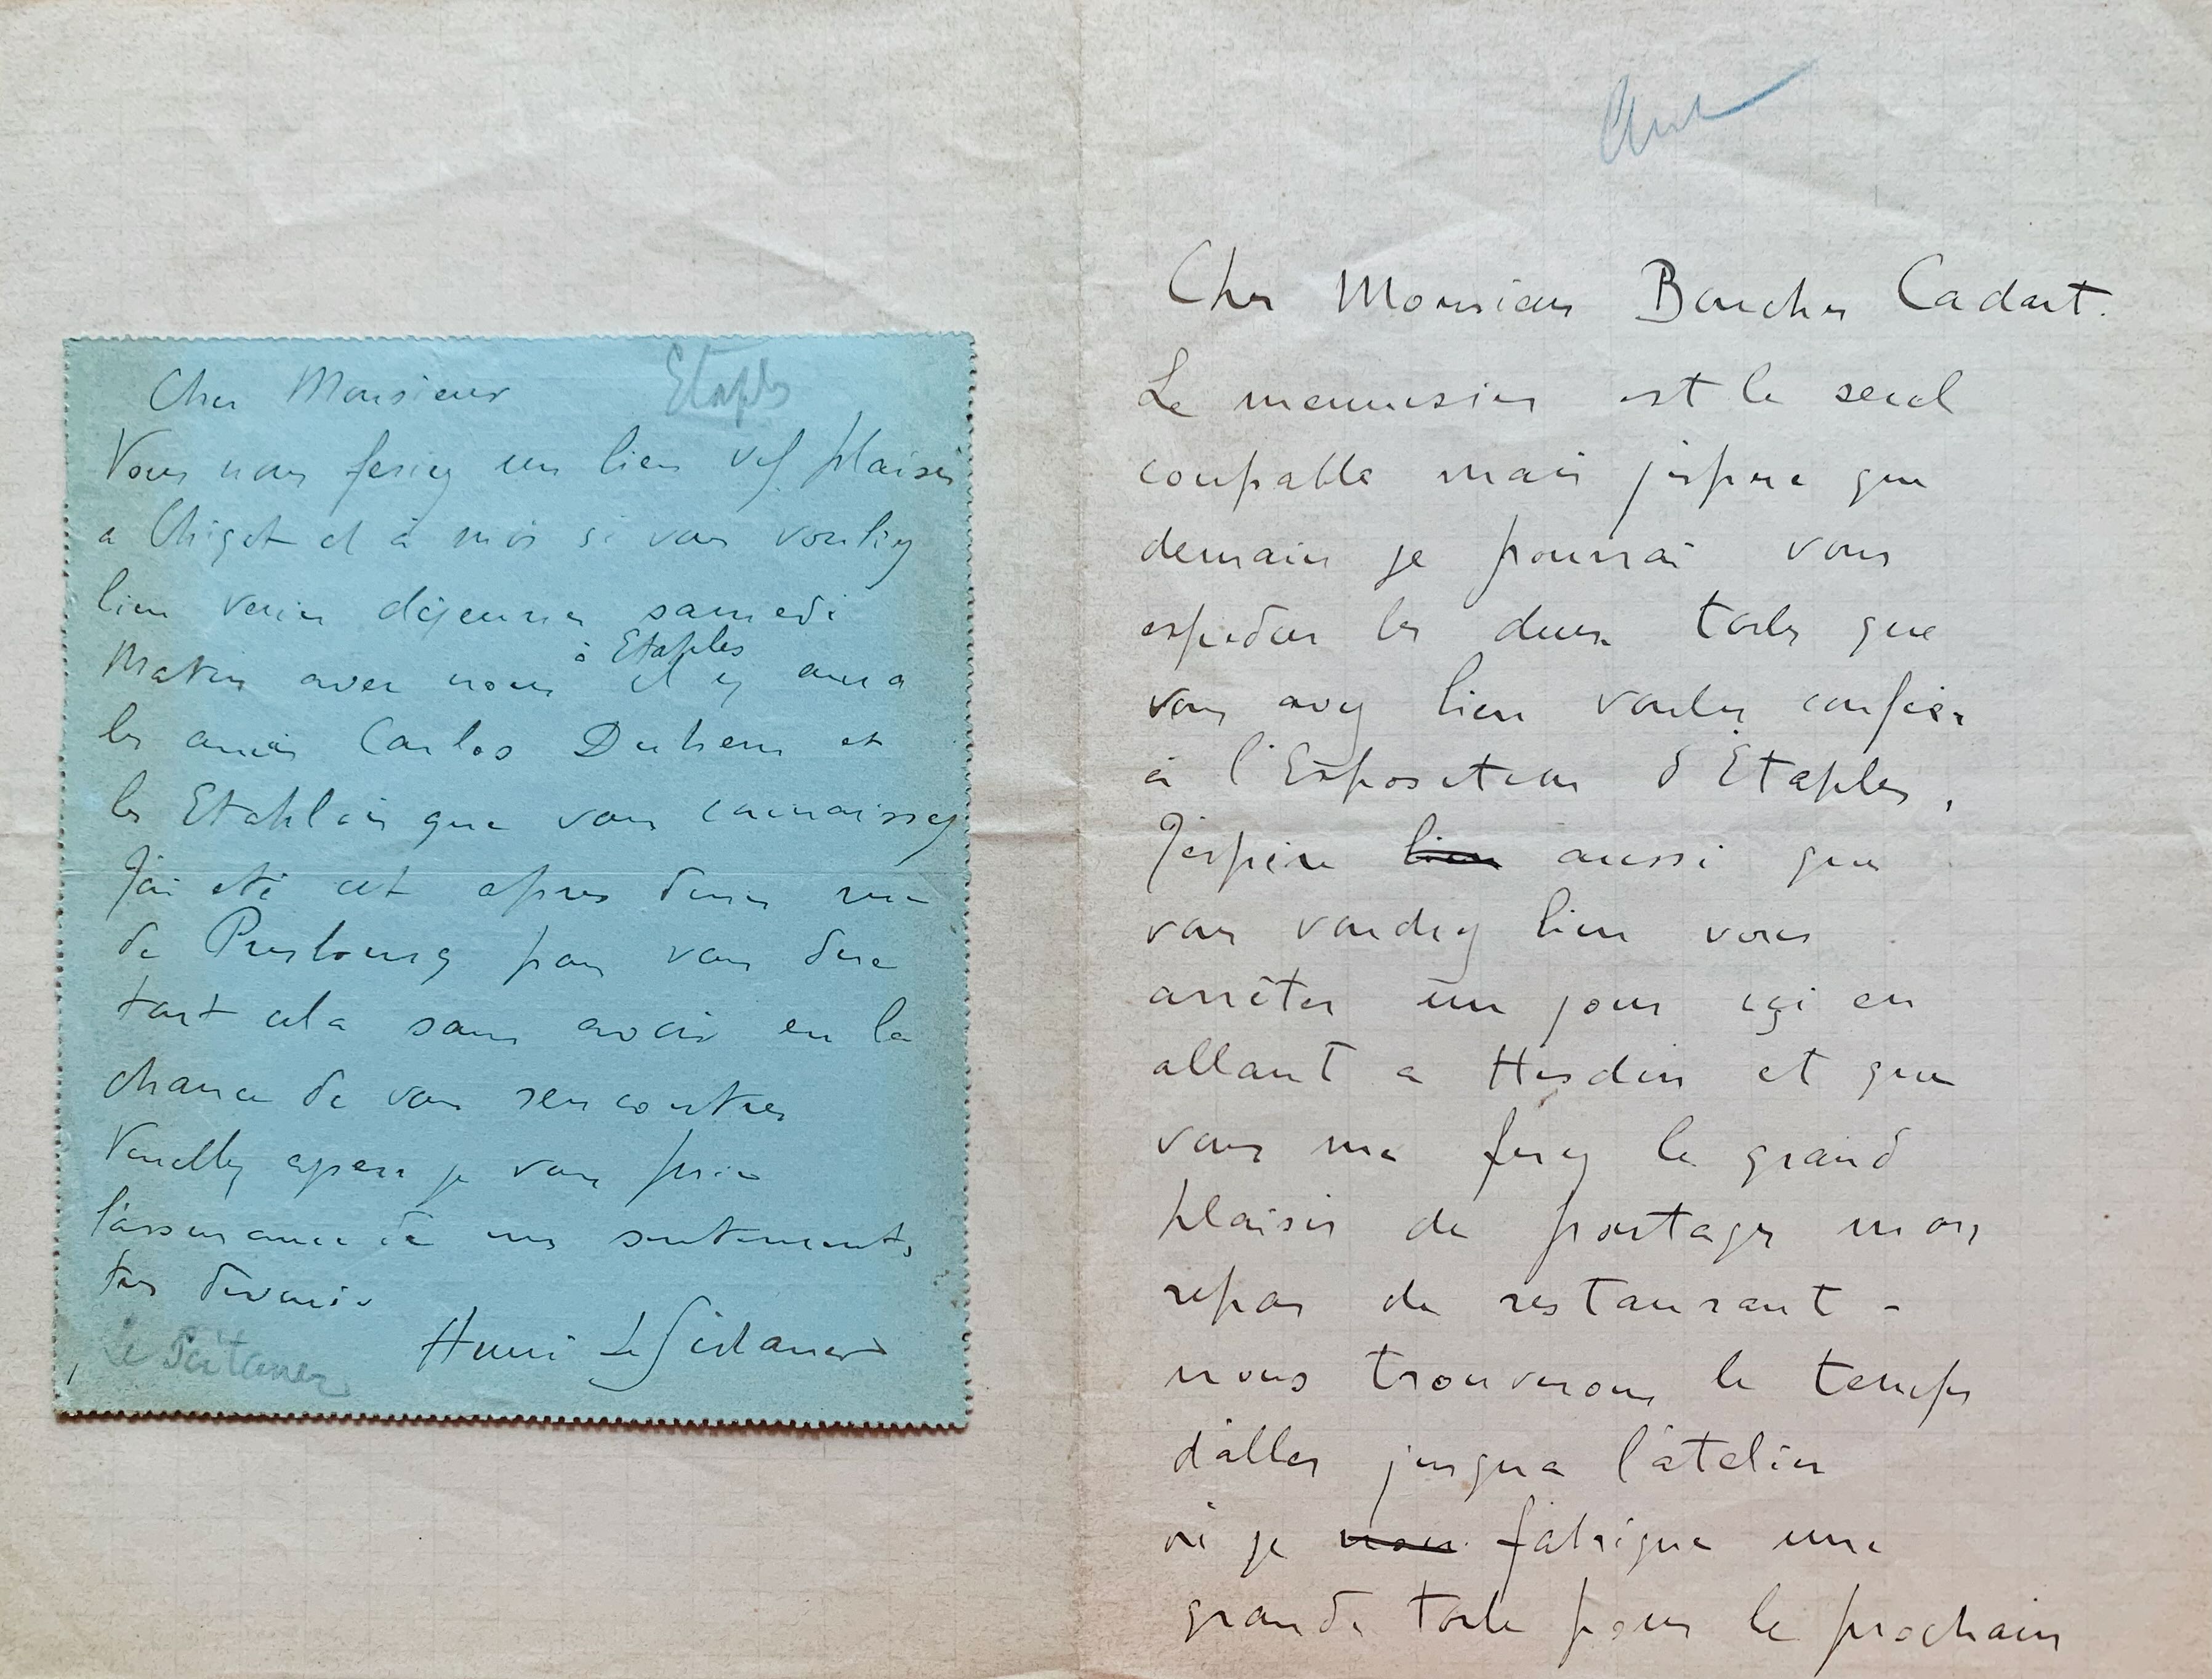 Etaples
Cher Monsieur
Vous nous feriez un bien vif plaisir
a Chigot et à moi si vous vouliez
bien venir déjeuner samedi
à Etaples
matin avec nous il y aura
les amis Carlos Duhem et
les Etaplois que vous connaissez
J'ai été cet apres diner rue
de Presbourg pour vous dire
tout cela sans avoir eu la
chance de vous rencontrer
Veuillez agréer je vous prie
l'assurance de mes sentiments
très devoués
Henri Le Sidaner
Le Sidaner
Cher Monsieur Boucher Cadart.
Le menuisier est le seul
coupable mais j'espere que
demain je pourrai vous
expedier les deux toiles que
vous avez bien voulu confier
à l'Exposition d'Etaples,
J'espère bien aussi que
vous voudrez bien vous
arrêter un jour içi en
allant a Hesdin et que
vous me ferez le grand
plaisir de partager mon
repas de restaurant -
nous trouverons le temps
d'aller jusqua l'atelier
où je nous fabrique une
grande toile pour le prochain